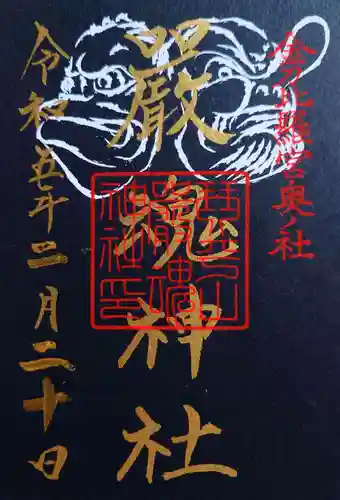 金刀比羅宮奥ノ社
嚴魂神社
令和五年二月二十日